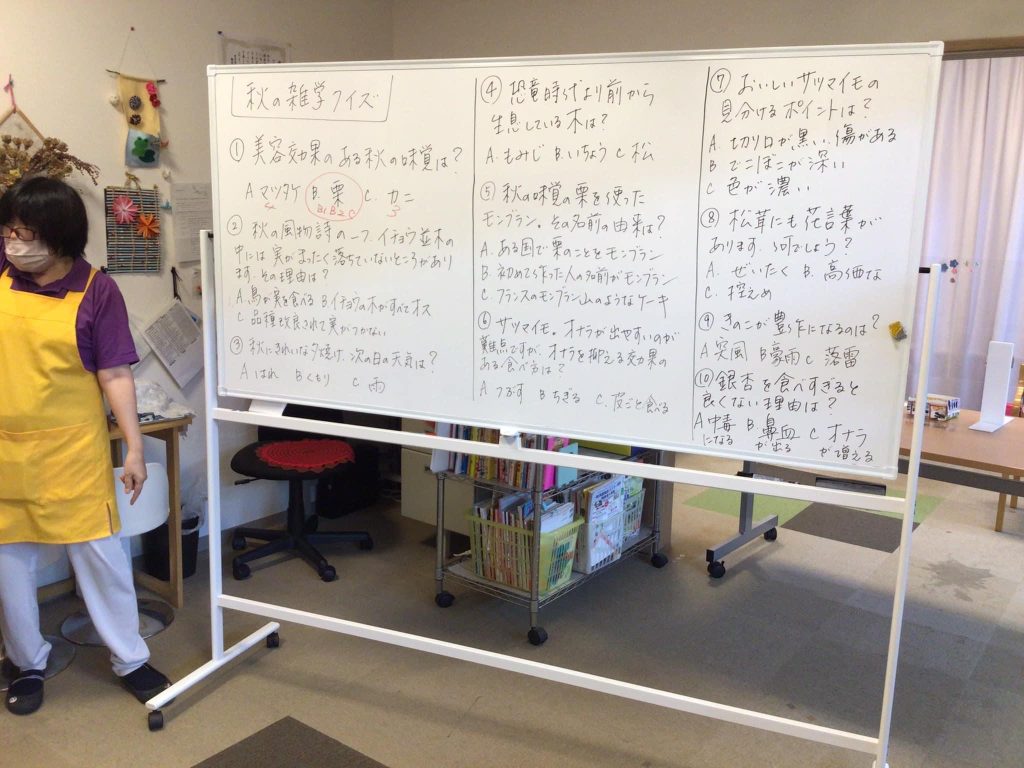 秋の雑学クイズ
① 美容効果のある秋の味覚は?
A マツタケ B. 栗 C. カニ
B1 B2 C
② 秋の風物詩の一つ、イチョウ並木の
中には実がまったく落ちていないところがあり
ます。その理由は?
A. 鳥が実を食べる B イチョウの木がすべてオス
C 品種改良されて実がつかない
③ 秋にきれいな夕焼け、次の日の天気は?
A はれ B くもり C 雨
④ 恐竜時代より前から
生息している木は?
A. もみじ B. いちょう C 松
⑤ 秋の味覚の栗を使った
モンブラン。その名前の由来は?
A. ある国で栗のことをモンブラン
B. 初めて作った人の名前がモンブラン
C. フランスのモンブラン山のようなケーキ
⑥ サツマイモ。オナラが出やすいのが
難点ですが、オナラを抑える効果の
ある食べ方は?
A つぶす B ちぎる C. 皮ごと食べる
⑦ おいしいサツマイモの
見分けるポイントは?
A. 切り口が黒い、傷がある
B でこぼこが深い
C 色が濃い
⑧ 松茸にも花言葉が
あります。何でしょう?
A. ぜいたく B. 高価な
C. 控えめ
⑨ きのこが豊作になるのは?
A 突風 B 豪雨 C 落雷
⑩ 銀杏を食べすぎると
良くない理由は?
A 中毒 B. 鼻血 C オナラ
になる が出る が増える